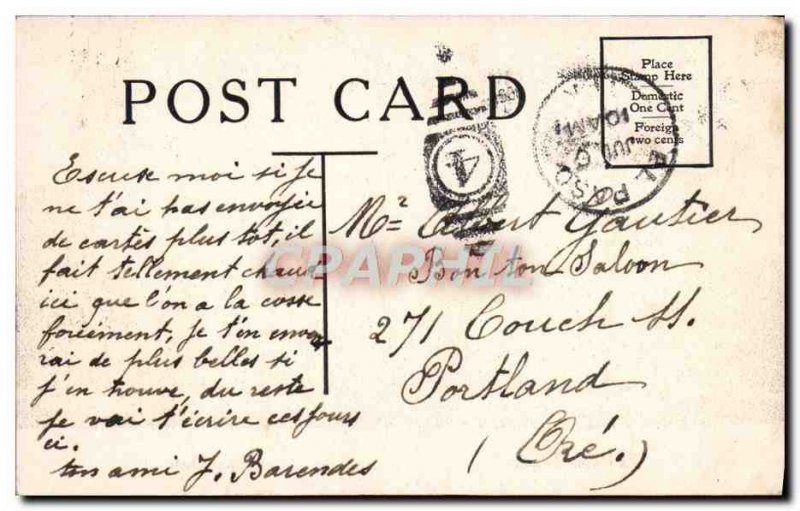 POST CARD
Place
Stamp Here
Domestic
One Cent
Foreign
two cents
EL PASO
JUL
10 AM
4
Escuse moi si je
ne t'ai pas envoyée
de cartes plus tot, il
fait tellement chaud
ici que l'on a la cosse
forcement, je t'en envoy
rai de plus belles si
j'en trouve, du reste
je vai t'écrire ces jours
ci.
ton ami J. Barendes
Mr Albert Gautier
Bon ton Saloon
271 Couch St.
Portland
(Oré.)
CPAPHIL